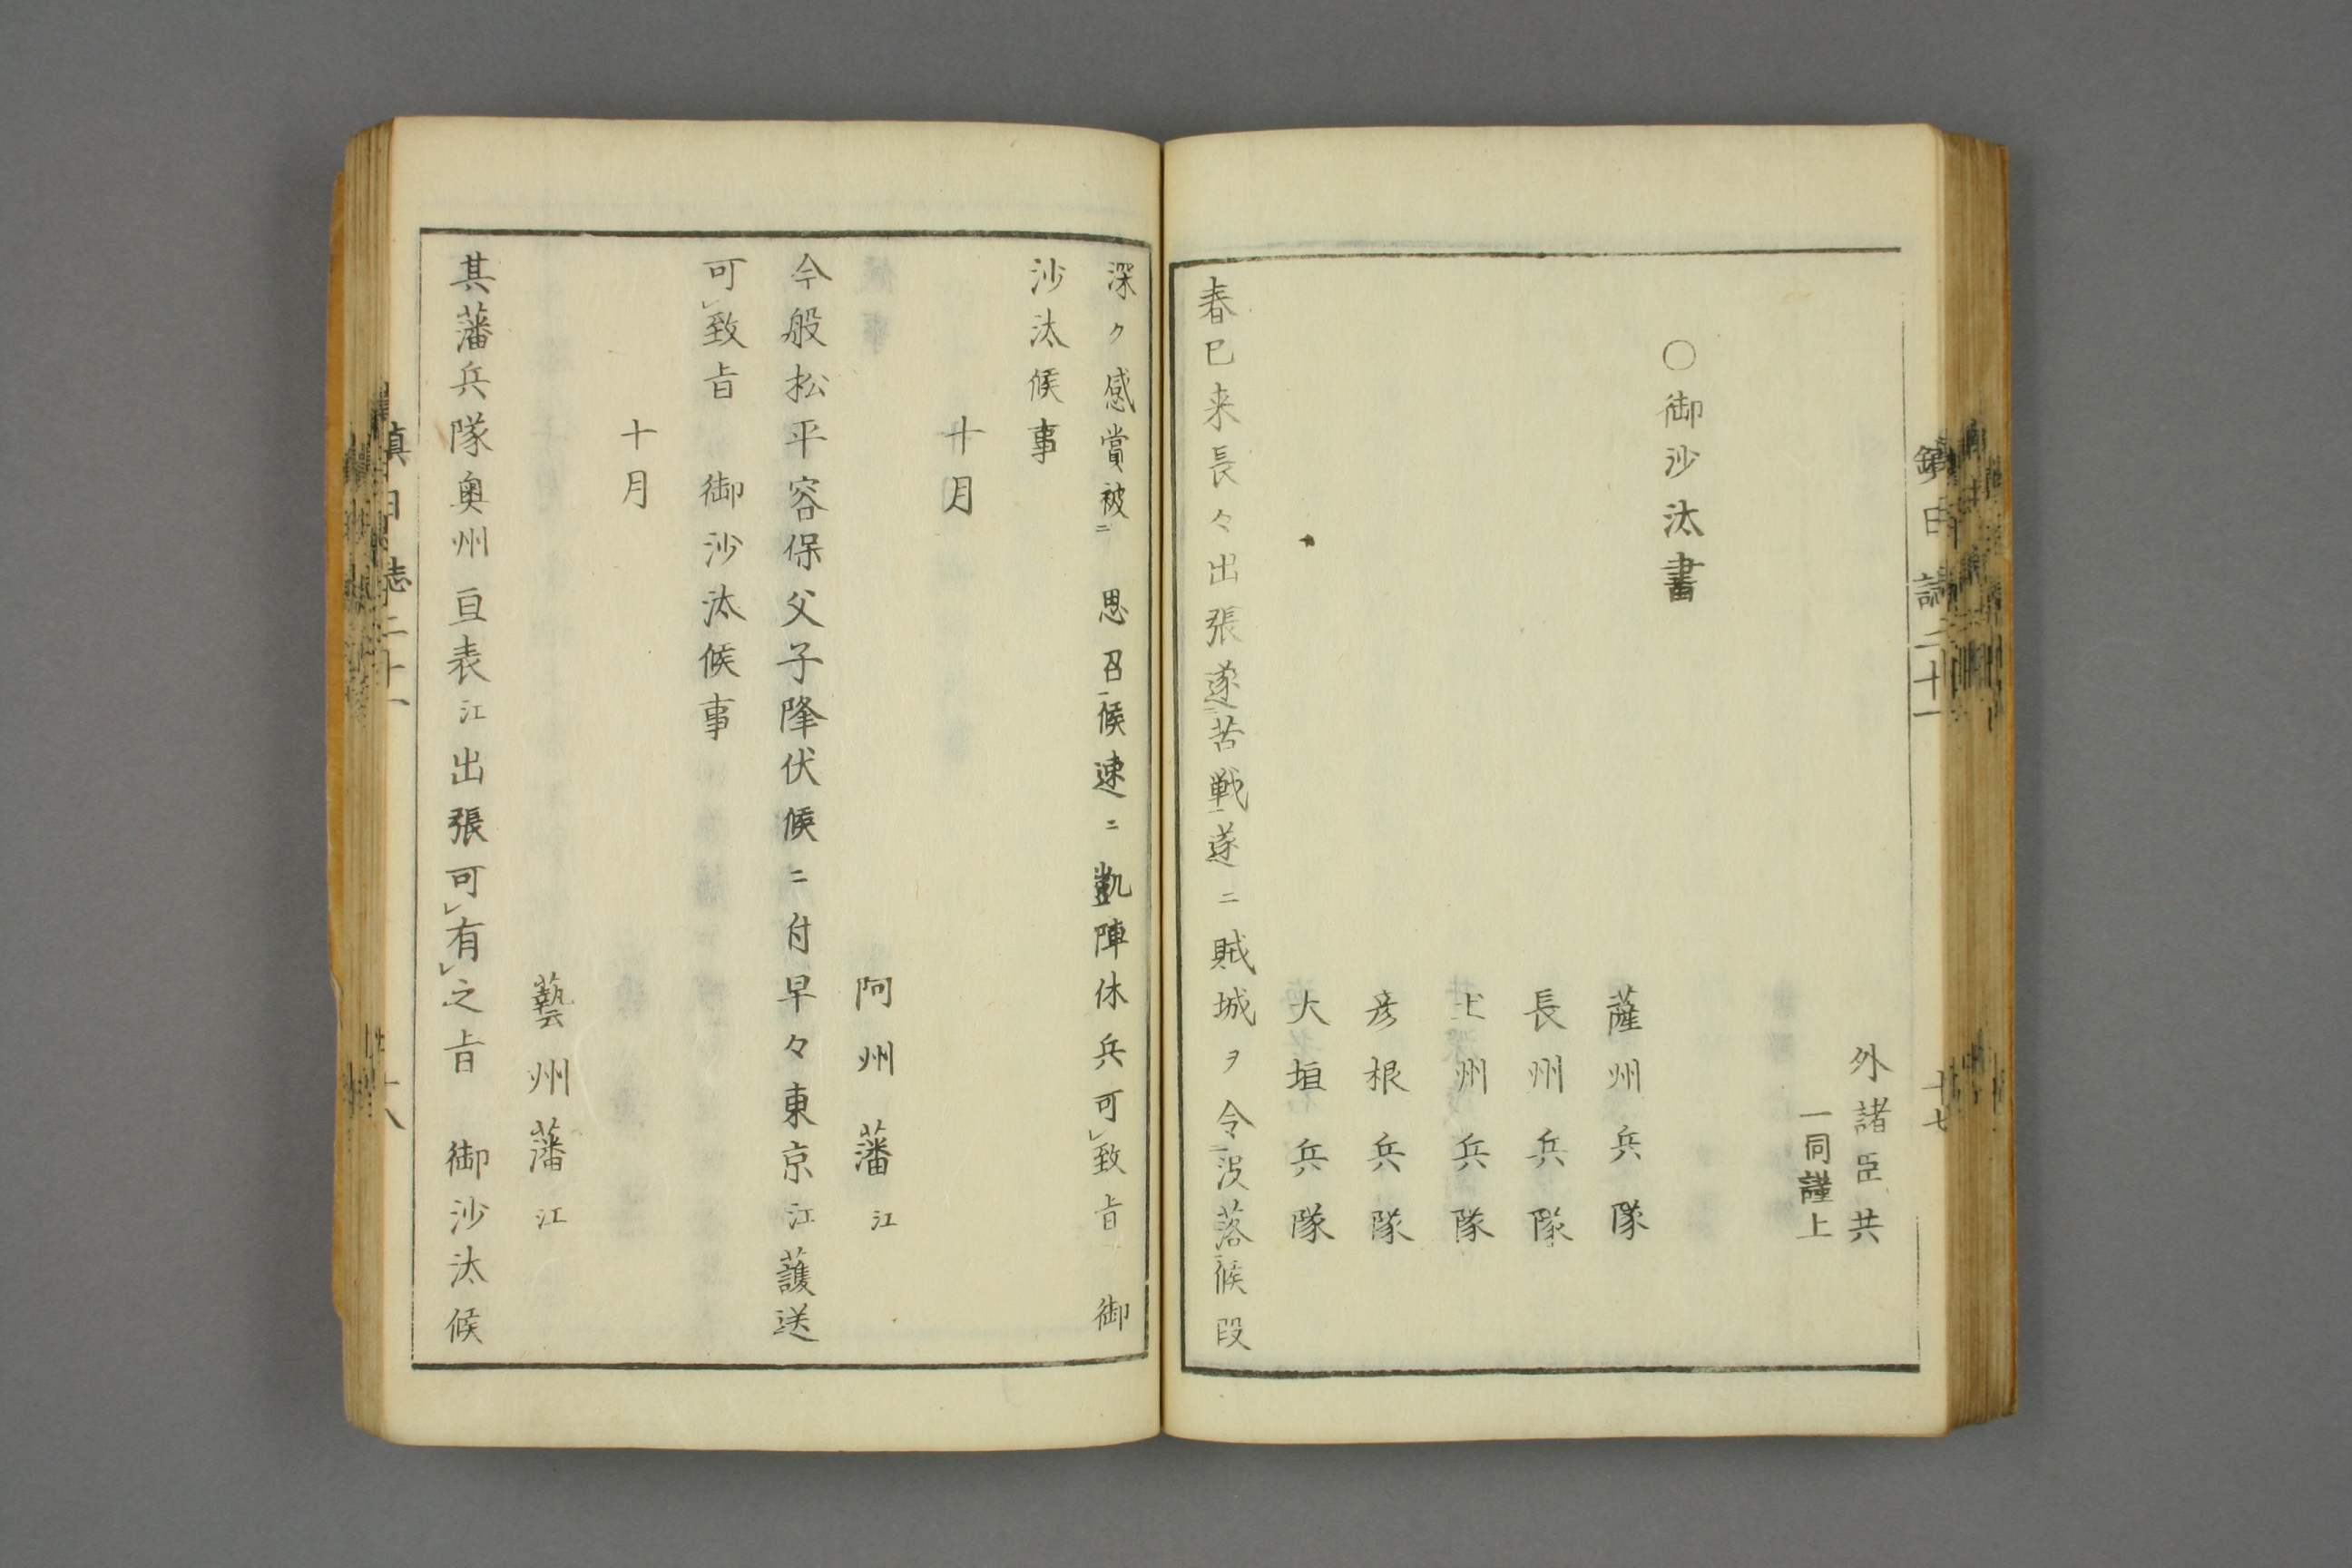 外諸臣共
一同謹上
○御沙汰書
薩州兵隊
長州兵隊
土州兵隊
彦根兵隊
大垣兵隊
春已来長々出張遂苦戦遂ニ賊城ヲ令没落候段
深ク感賞被 思召候速ニ凱陣休兵可致旨 御
沙汰候事
十月
阿州藩江
今般松平容保父子降伏候ニ付早々東京江護送
可致旨 御沙汰候事
十月
藝州藩江
其藩兵隊奥州亘表江出張可有之旨 御沙汰候
鎮日誌二十一
十七
鎮日志二十一
十八